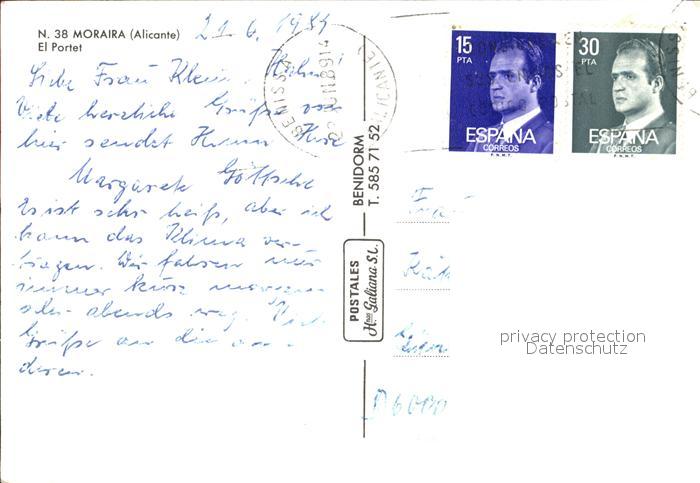 N. 38 MORAIRA (Alicante)
El Portet
21. 6. 1989
Liebe Frau Klein.
Viele herzliche Grüße von
hier sendet Ihnen Ihre
Margarete Göttsche
Es ist sehr heiß, aber ich
kann das Klima ver-
tragen. Wir fahren nur
immer kurz morgens
oder abends weg. Viele
Grüße an die an-
deren.
BENIDORM
T. 585 71 52
POSTALES
Hnos Galiana S.L.
BENISSA
(ALICANTE)
15
PTA
ESPAÑA
CORREOS
F.N.M.T.
30
PTA
ESPAÑA
CORREOS
F.N.M.T.
Frau
D 6000
privacy protection
Datenschutz